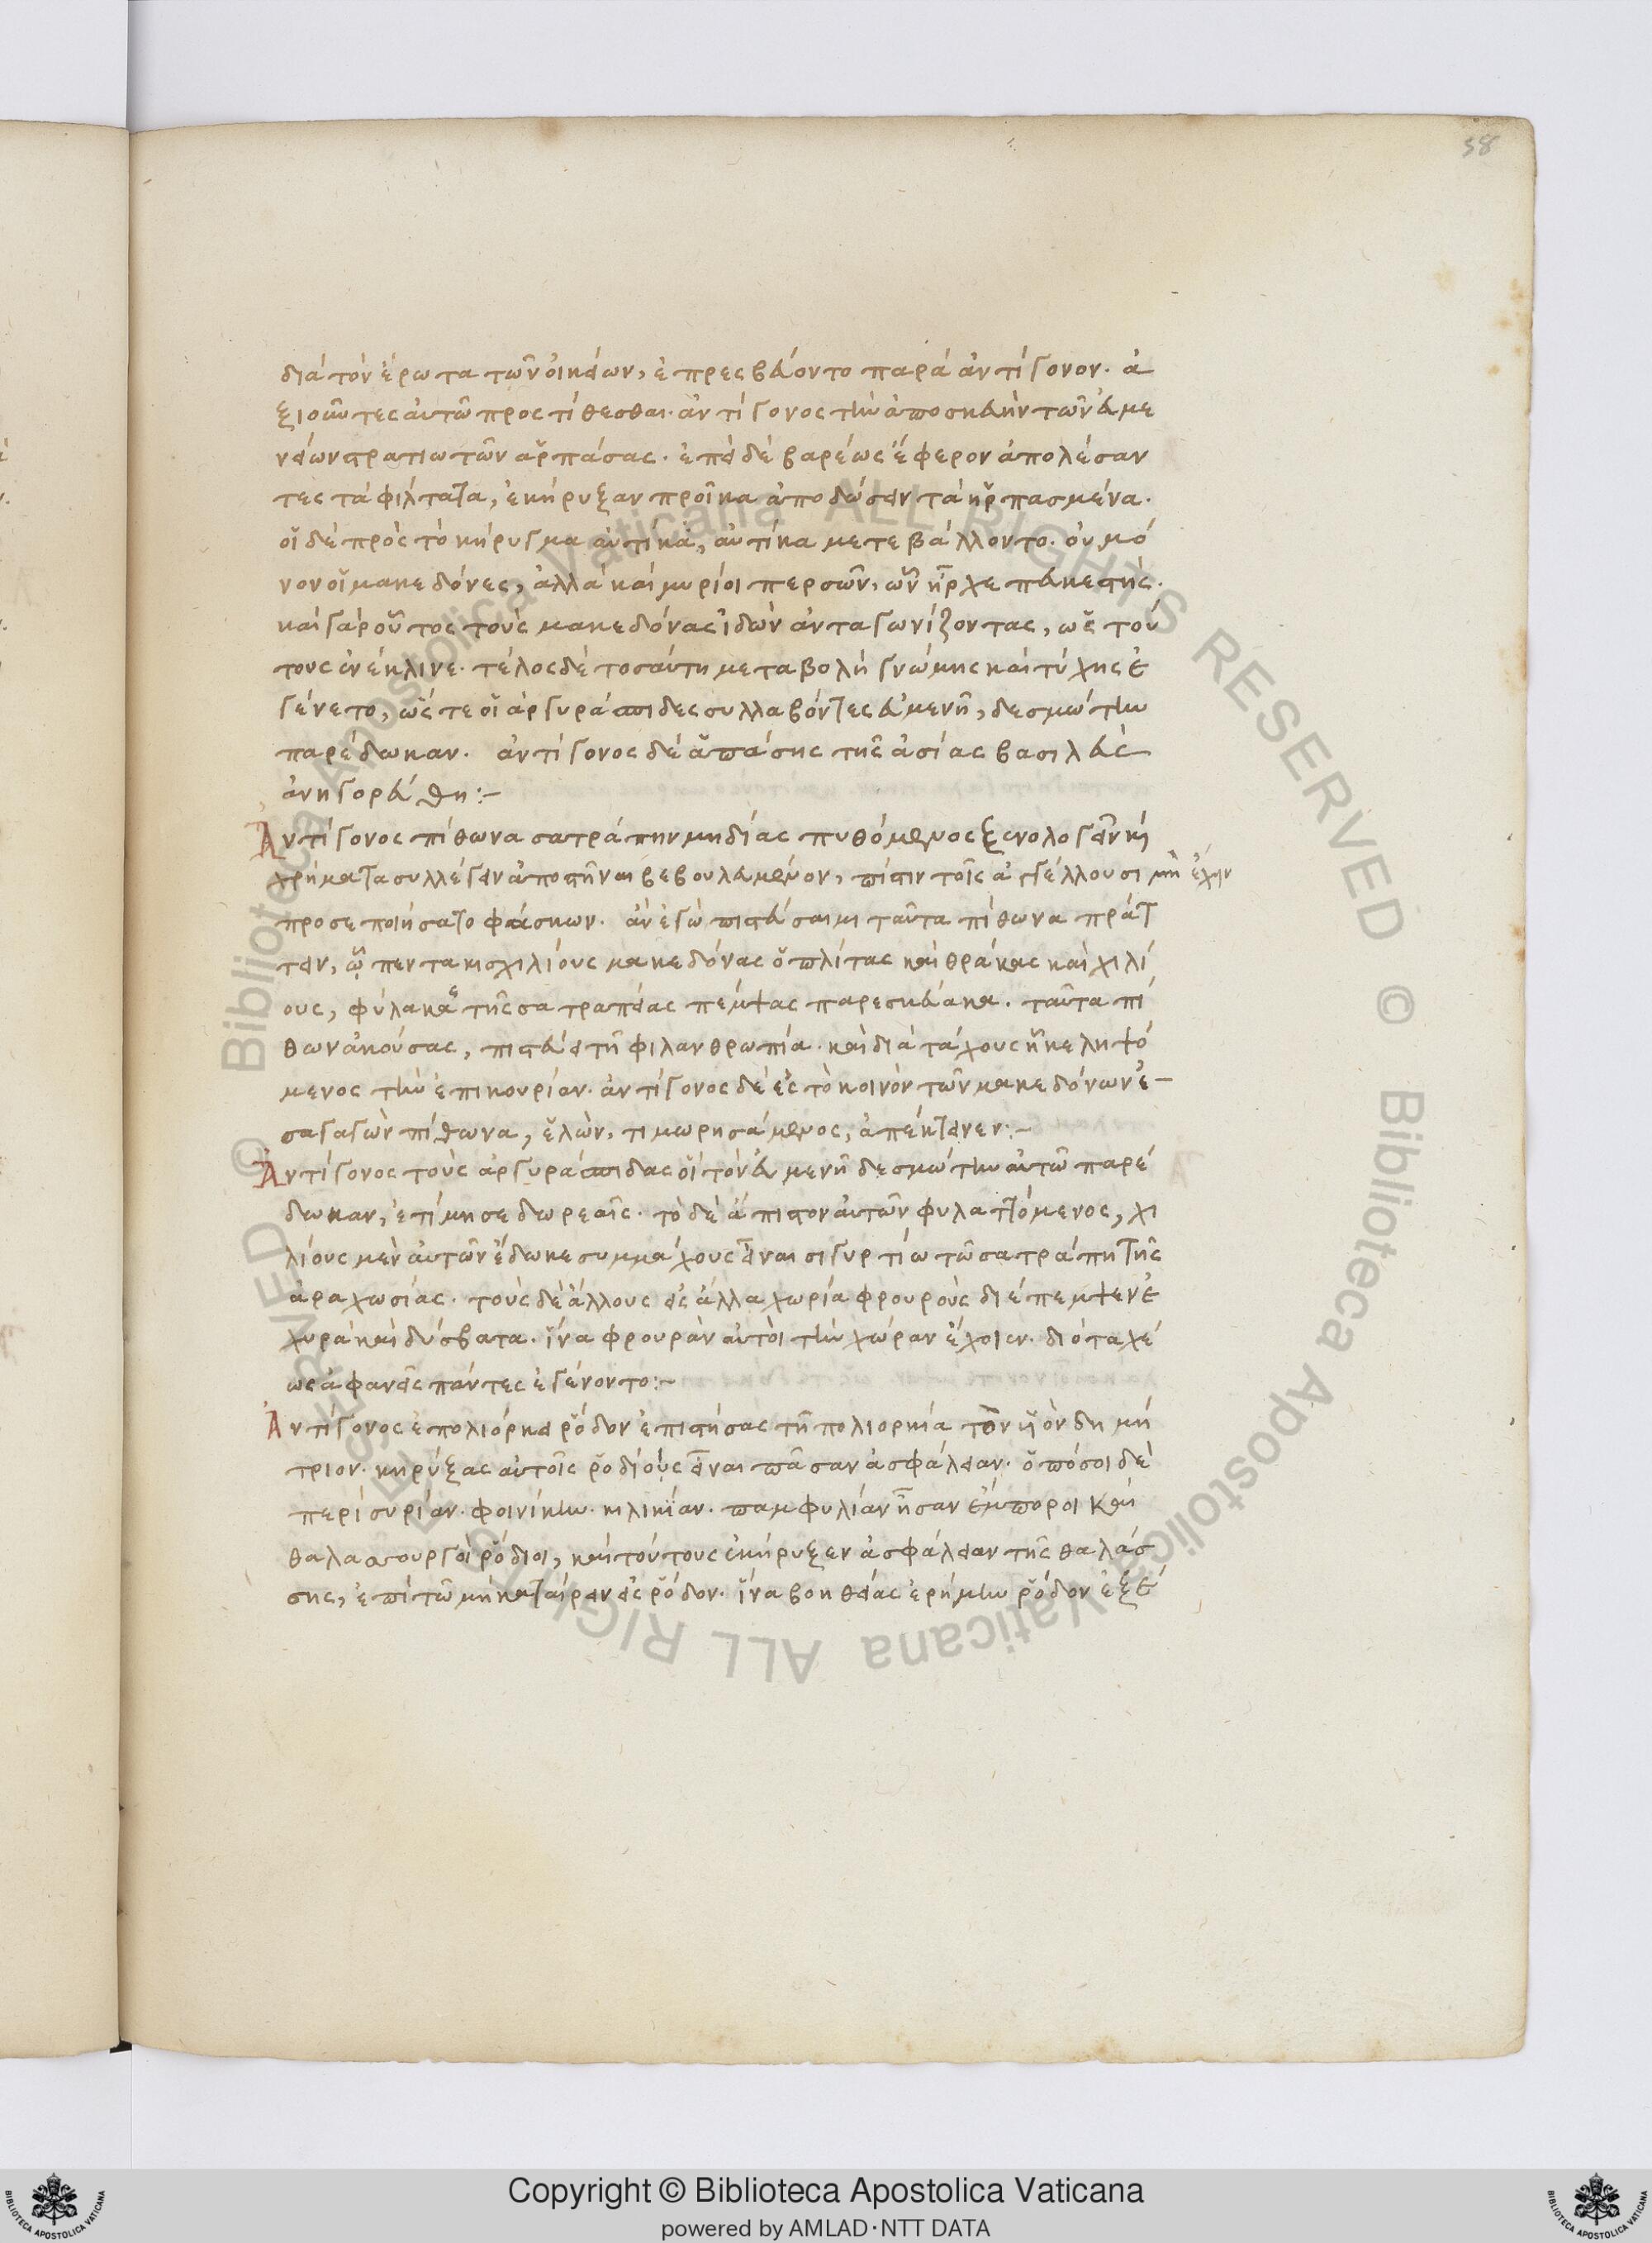 38
διὰ τὸν ἔρωτα τῶν οἰκείων, ἐπρεσβεύοντο παρὰ ἀντίγονον. ἀ
ξιοῦντες αὐτῶ προστίθεσθαι. ἀντίγονος τὴν ἀποσκευὴν τῶν εὐμε
νείων στρατιωτῶν ἁρπάσας. ἐπεὶ δὲ βαρέως ἔφερον ἀπολέσαν
τες τὰ φίλτατα, ἐκήρυξαν προῖκα ἀποδώσειν τὰ ἡρπασμένα.
οἱ δὲ πρὸς τὸ κήρυγμα αὐτίκα, αὐτίκα μετεβάλλοντο. οὐ μό
νον οἱ μακεδόνες, ἀλλὰ καὶ μυρίοι περσῶν, ὧν ἦρχε πευκέστης.
καὶ γὰρ οὗτος τοὺς μακεδόνας ἰδὼν ἀνταγωνίζοντας, ὡς τού
τους ἐνέκλινε. τέλος δὲ τοσαύτη μεταβολὴ γνώμης καὶ τύχης ἐ
γένετο, ὥστε οἱ ἀργυράσπιδες συλλαβόντες εὐμενῆ, δεσμώτην
παρέδωκαν. ἀντίγονος δὲ ἁπάσης τῆς ἀσίας βασιλεὺς
ἀνηγορεύθη:-
Ἀντίγονος πίθωνα σατράπην μηδίας πυθόμενος ξενολογεῖν κὶ
χρήματα συλλέγειν ἀποστῆναι βεβουλευμένον, πίστιν τοῖς ἀγγέλλουσι μὴ ἔχειν
προσεποιήσατο φάσκων. ἂν ἐγὼ πιστεύσαιμι ταῦτα πίθωνα πράτ
τειν, ᾧ πεντακισχιλίους μακεδόνας ὁπλίτας καὶ θράκας καὶ χιλί
ους, φύλακας τῆς σατραπείας πέμψας παρεσκεύακα. ταῦτα πί
θων ἀκούσας, πιστεύει τῆ φιλανθρωπία. καὶ διὰ τάχους ἧκε ληψό
μενος τὴν ἐπικουρίαν. ἀντίγονος δὲ ἐς τὸ κοινὸν τῶν μακεδόνων ἐ-
σαγαγὼν πίθωνα, ἑλὼν, τιμωρησάμενος, ἀπέκτεινεν:-
Ἀντίγονος τοὺς ἀργυράσπιδας οἳ τὸν εὐμενῆ δεσμώτην αὐτῶ παρέ
δωκαν, ἐτίμησε δωρεαῖς. τὸ δὲ ἄπιστον αὐτῶν φυλαττόμενος, χι
λίους μὲν αὐτῶν ἔδωκε συμμάχους εἶναι σιγυρτίω τῶ σατράπη τῆς
ἀραχωσίας. τοὺς δὲ ἄλλους εἰς ἄλλα χωρία φρουροὺς διέπεμψεν ἐ
χυρὰ καὶ δύσβατα. ἵνα φρουρὰν αὐτοὶ τὴν χώραν ἔχοιεν. διὸ ταχέ
ως ἀφανεῖς πάντες ἐγένοντο:-
Ἀντίγονος ἐπολιόρκει ῥόδον ἐπιστήσας τῆ πολιορκία τὸν ὑὸν δημή
τριον. κηρύξας αὐτοῖς ῥοδίοὺς εἶναι πᾶσαν ἀσφάλειαν. ὁπόσοι δὲ
περὶ συρίαν. φοινίκην. κιλικίαν. παμφυλίαν ἦσαν ἔμποροι καὶ
θαλασσουργοὶ ῥόδιοι, καὶ τούτους ἐκήρυξεν ἀσφάλειαν τῆς θαλάσ
σης, ἐπὶ τῶ μὴ καταίρειν εἰς ῥόδον. ἵνα βοηθείας ἐρήμην ῥόδον ἐξέ
Copyright © Biblioteca Apostolica Vaticana
powered by AMLAD·NTT DATA